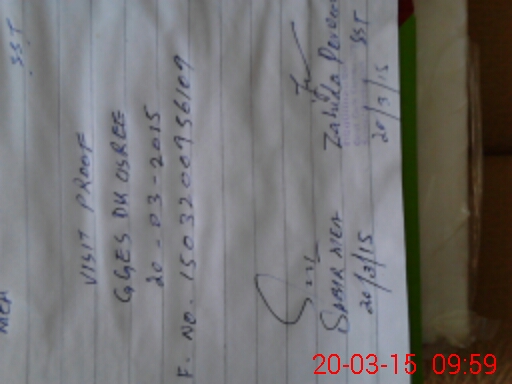 SST
MEA
VISIT PROOF
GGES DHOSREE
20-03-2015
F. No. 1503200956109
SABIR MEA
20/3/15
Zahida Perveen
SST
20/3/15
20-03-15 09:59